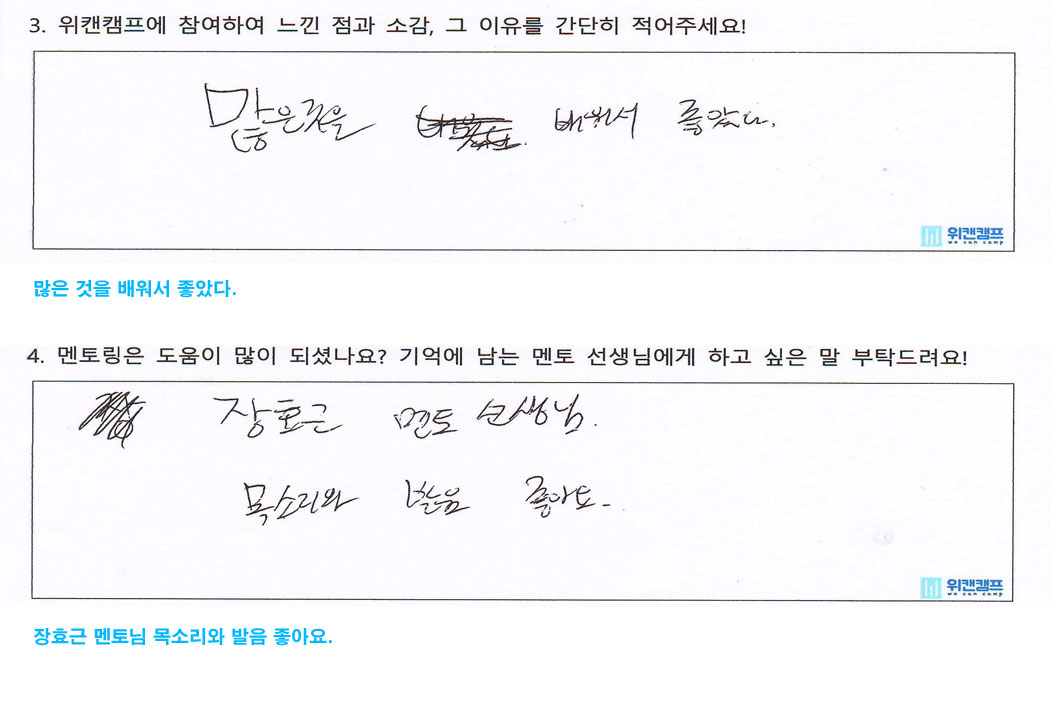 3. 위캔캠프에 참여하여 느낀 점과 소감, 그 이유를 간단히 적어주세요!
많은것을 배워서 좋았다.
위캔캠프
we can camp
많은 것을 배워서 좋았다.
4. 멘토링은 도움이 많이 되셨나요? 기억에 남는 멘토 선생님에게 하고 싶은 말 부탁드려요!
장효근 멘토 선생님.
목소리와 발음 좋아요.
위캔캠프
we can camp
장효근 멘토님 목소리와 발음 좋아요.